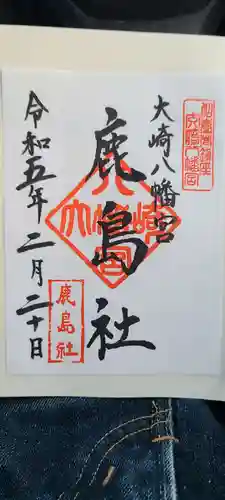 大崎八幡宮
鹿島社
令和五年二月二十日
鹿島社
大崎八幡宮